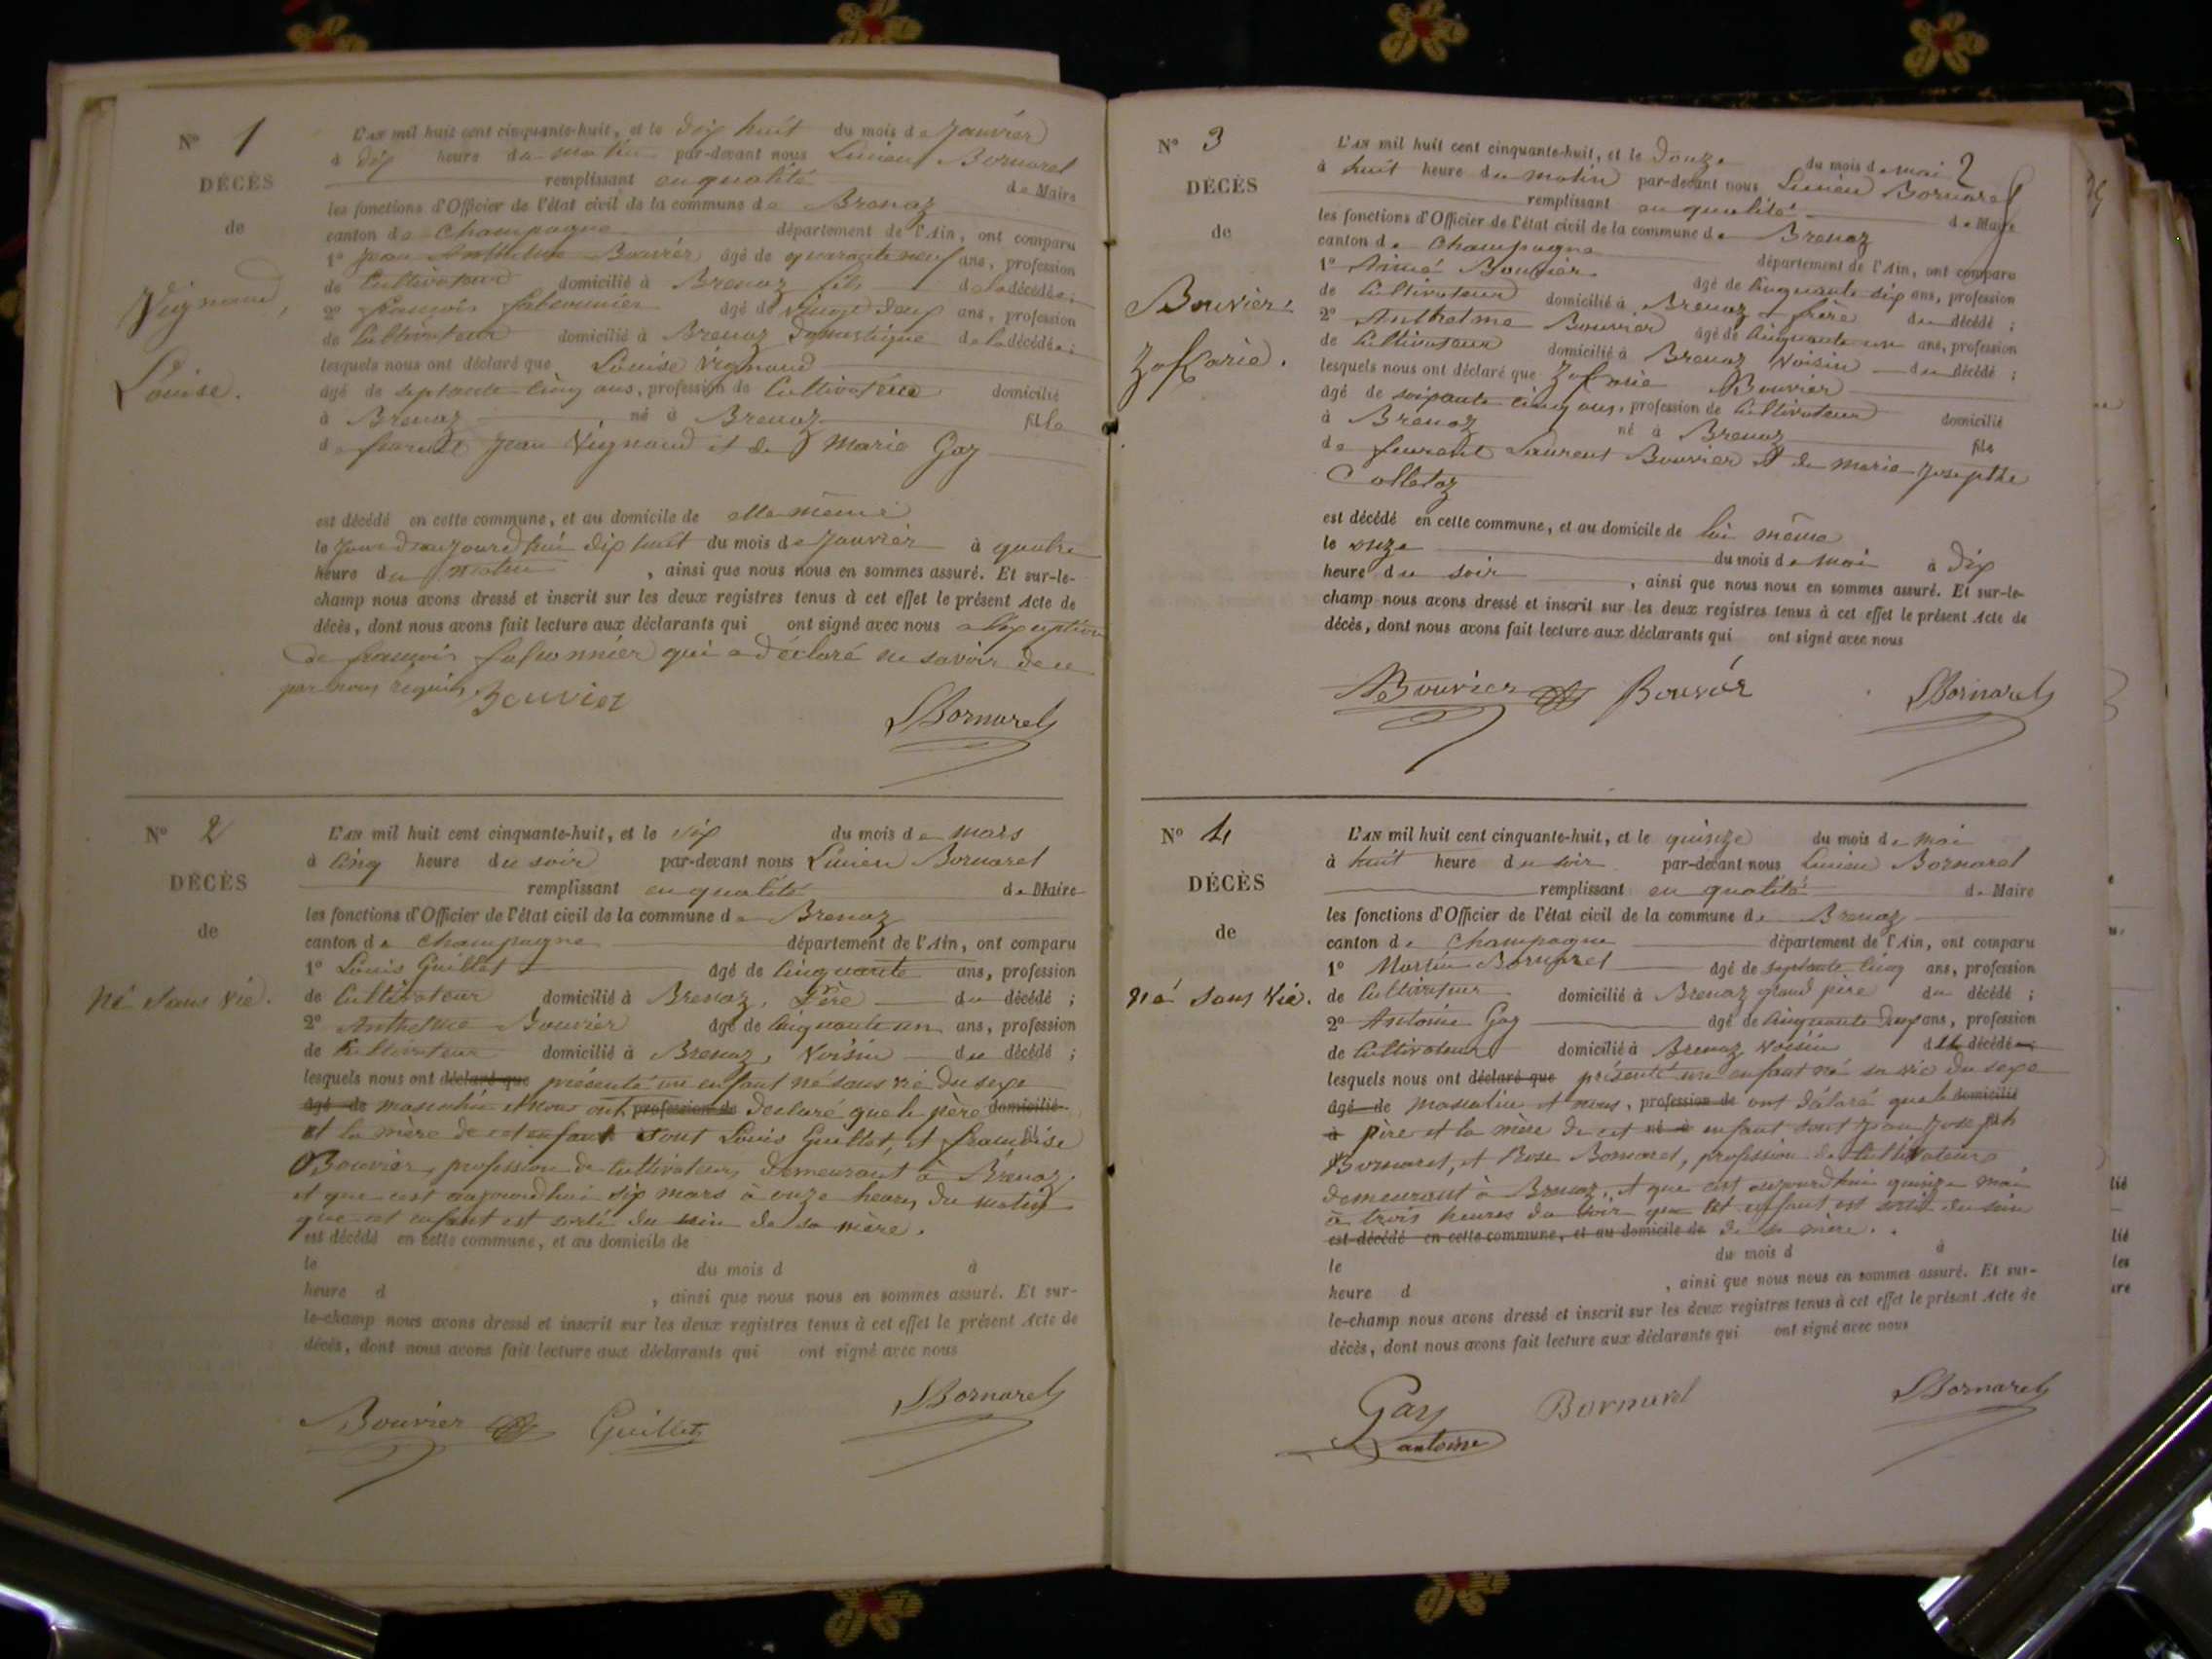 N° 1
DÉCÈS
de
Vignaud,
Louise.
L'AN mil huit cent cinquante-huit, et le dix huit du mois de Janvier
à dix heure du matin par-devant nous Lucien Bornarel
remplissant en qualité de Maire
les fonctions d'Officier de l'état civil de la commune de Brenaz
canton de Champagne département de l'Ain, ont comparu
1° Jean Anthelme Bouvier âgé de quarante neuf ans, profession
de Cultivateur domicilié à Brenaz fils de la décédée;
2° françois âgé de vingt deux ans, profession
de Cultivateur domicilié à Brenaz Domestique de la décédée;
lesquels nous ont déclaré que Louise Vignaud
âgé de septante cinq ans, profession de Cultivatrice domicilié
à Brenaz né à Brenaz fille
de Jean Vignaud et de Marie Gay
est décédé en cette commune, et au domicile de elle même
le Jour d'aujourd'hui dix huit du mois de Janvier à quatre
heure du matin, ainsi que nous nous en sommes assuré. Et sur-le-
champ nous avons dressé et inscrit sur les deux registres tenus à cet effet le présent Acte de
décès, dont nous avons fait lecture aux déclarants qui ont signé avec nous
de françois qui a déclaré ne savoir de ce
par nous requis, Bouvier
LBornarel
N° 2
DÉCÈS
de
Né sans vie.
L'AN mil huit cent cinquante-huit, et le six du mois de mars
à Cinq heure du soir par-devant nous Lucien Bornarel
remplissant en qualité de Maire
les fonctions d'Officier de l'état civil de la commune de Brenaz
canton de Champagne département de l'Ain, ont comparu
1° Louis Guillet âgé de Cinquante ans, profession
de Cultivateur domicilié à Brenaz, Père du décédé;
2° Anthelme Bouvier âgé de Cinquante un ans, profession
de Cultivateur domicilié à Brenaz, Voisin du décédé;
lesquels nous ont déclaré que présenté un enfant né sans vie du sexe
âgé de masculin et nous ont profession de declaré que le père domicilié
et la mère de cet enfant sont Louis Guillet, et françoise
Bouvier, profession de Cultivateurs, demeurant à Brenaz,
et que cest aujourdhui six mars à onze heures du matin
que cet enfant est sorti du sein de sa mère.
est décédé en cette commune, et au domicile de
le du mois d à
heure d, ainsi que nous nous en sommes assuré. Et sur-
le-champ nous avons dressé et inscrit sur les deux registres tenus à cet effet le présent Acte de
décès, dont nous avons fait lecture aux déclarants qui ont signé avec nous
Bouvier Guillet LBornarel
N° 3
DÉCÈS
de
Bouvier
Zaffarie.
L'AN mil huit cent cinquante-huit, et le Douze du mois de mai 2
à huit heure du matin par-devant nous Lucien Bornarel
remplissant en qualité de Maire
les fonctions d'Officier de l'état civil de la commune de Brenaz
canton de Champagne département de l'Ain, ont comparu
1° Aimé Bouvier âgé de Cinquante six ans, profession
de Cultivateur domicilié à Brenaz frère du décédé;
2° Anthelme Bouvier âgé de Cinquante un ans, profession
de Cultivateur domicilié à Brenaz Voisin du décédé;
lesquels nous ont déclaré que Bouvier
âgé de soixante cinq ans, profession de Cultivateur domicilié
à Brenaz né à Brenaz fils
de Laurent Bouvier et de marie Josepthe
Colletaz
est décédé en cette commune, et au domicile de lui même
le onze du mois de mai à dix
heure du soir, ainsi que nous nous en sommes assuré. Et sur-le-
champ nous avons dressé et inscrit sur les deux registres tenus à cet effet le présent Acte de
décès, dont nous avons fait lecture aux déclarants qui ont signé avec nous
Bouvier Bouvier LBornarel
N° 4
DÉCÈS
de
Né sans vie.
L'AN mil huit cent cinquante-huit, et le quinze du mois de mai
à huit heure du soir par-devant nous Lucien Bornarel
remplissant en qualité de Maire
les fonctions d'Officier de l'état civil de la commune de Brenaz
canton de Champagne département de l'Ain, ont comparu
1° Martin Bornarel âgé de septante Cinq ans, profession
de Cultivateur domicilié à Brenaz grand père du décédé;
2° Antoine Gay âgé de Cinquante deux ans, profession
de Cultivateur domicilié à Brenaz Voisin du décédé
lesquels nous ont déclaré que présenté un enfant né sa vie du sexe
âgé de masculin et nous, profession de ont déclaré que le domicilié
à père et la mère de cet né à enfant sont Jean Joseph
Bornarel, et Rose Bornarel, profession de Cultivateurs
demeurant à Brenaz, et que cest aujourdhui quinze mai
à trois heures du soir que cet enfant est sorti du sein
est décédé en cette commune, et au domicile de de sa mère.
le du mois d à
heure d, ainsi que nous nous en sommes assuré. Et sur-
le-champ nous avons dressé et inscrit sur les deux registres tenus à cet effet le présent Acte de
décès, dont nous avons fait lecture aux déclarants qui ont signé avec nous
Gay Bornarel LBornarel
antoine